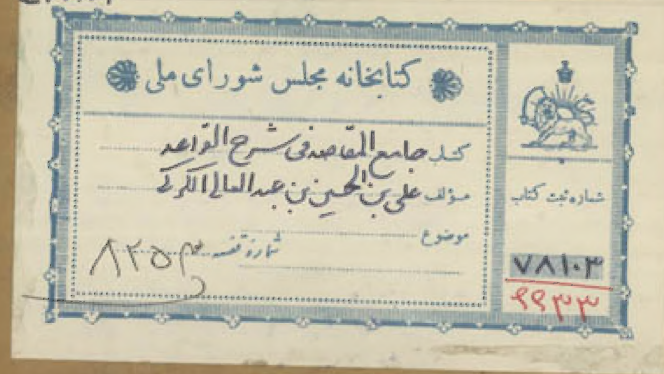 کتابخانه مجلس شورای ملی
کتاب جامع المقاصد فی شرح القواعد
مؤلف علی بن الحسین بن عبد العالی الکرکی
موضوع
شماره قفسه ۸۲۵۳
شماره ثبت کتاب
۷۸۱۰۳
۶۹۳۳